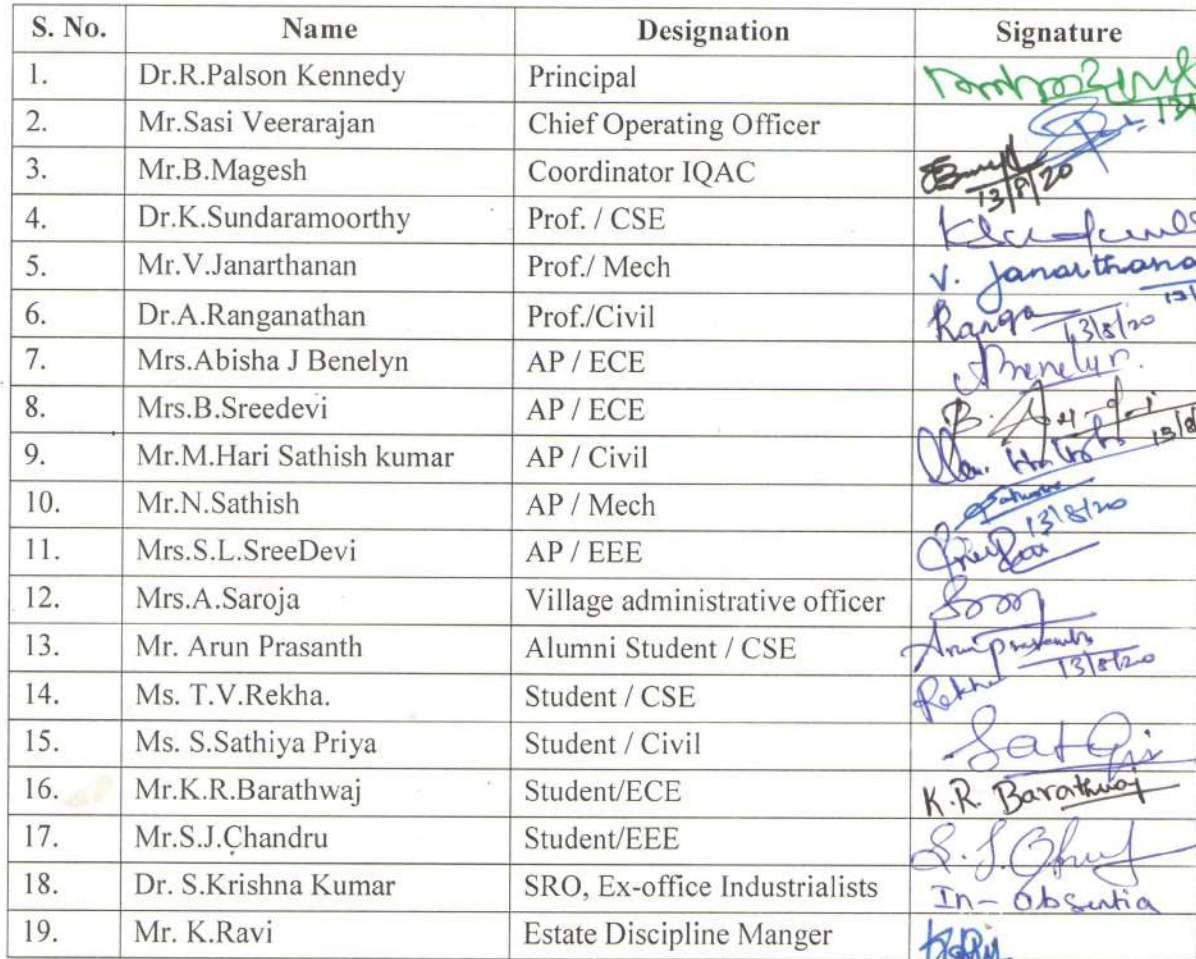 S. No. Name Designation Signature
1. Dr.R.Palson Kennedy Principal
2. Mr.Sasi Veerarajan Chief Operating Officer
3. Mr.B.Magesh Coordinator IQAC 13/8/20
4. Dr.K.Sundaramoorthy Prof. / CSE
5. Mr.V.Janarthanan Prof./ Mech V. Janarthana
6. Dr.A.Ranganathan Prof./Civil Ranga 13/8/20
7. Mrs.Abisha J Benelyn AP / ECE
8. Mrs.B.Sreedevi AP / ECE
9. Mr.M.Hari Sathish kumar AP / Civil
10. Mr.N.Sathish AP / Mech 13/8/20
11. Mrs.S.L.SreeDevi AP / EEE
12. Mrs.A.Saroja Village administrative officer
13. Mr. Arun Prasanth Alumni Student / CSE 13/8/20
14. Ms. T.V.Rekha. Student / CSE Rekha
15. Ms. S.Sathiya Priya Student / Civil
16. Mr.K.R.Barathwaj Student/ECE K.R. Barathwaj
17. Mr.S.J.Chandru Student/EEE
18. Dr. S.Krishna Kumar SRO, Ex-office Industrialists In-absentia
19. Mr. K.Ravi Estate Discipline Manger